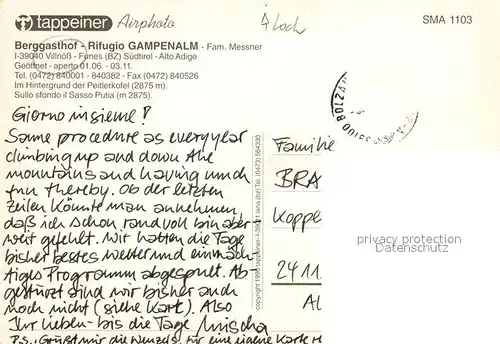 tappeiner Airphoto
4 Loch
SMA 1103
Berggasthof - Rifugio GAMPENALM - Fam. Messner
I-39040 Villnöß - Funes (BZ) Südtirol - Alto Adige
Geöffnet - aperto 01.06. - 03.11.
Tel. (0472) 840001 - 840382 - Fax (0472) 840526
Im Hintergrund der Peitlerkofel (2875 m).
Sullo sfondo il Sasso Putia (m 2875).
Giorno insieme!
Same procedure as every year
climbing up and down the
mountains and having much
fun thereby. Ob der letzten
Zeilen könnte man annehmen,
daß ich schon rand voll bin aber
weit gefehlt. Wir hatten die Tage
bisher bestes Wetter und ein mäch-
tiges Programm abgespult. Ab-
gestürzt sind wir bisher auch
noch nicht (siehe Karte). Also
Ihr Lieben - bis die Tage / Mischa
P.S.: Grüßt mir die Wenzels, für eine eigene Karte
copyright 1996 tappeiner - I-39011 lana (bz) Tel. (0473) 564330
BOLZA
Familie
BRA
Koppe
2411
Al
privacy protection
Datenschutz